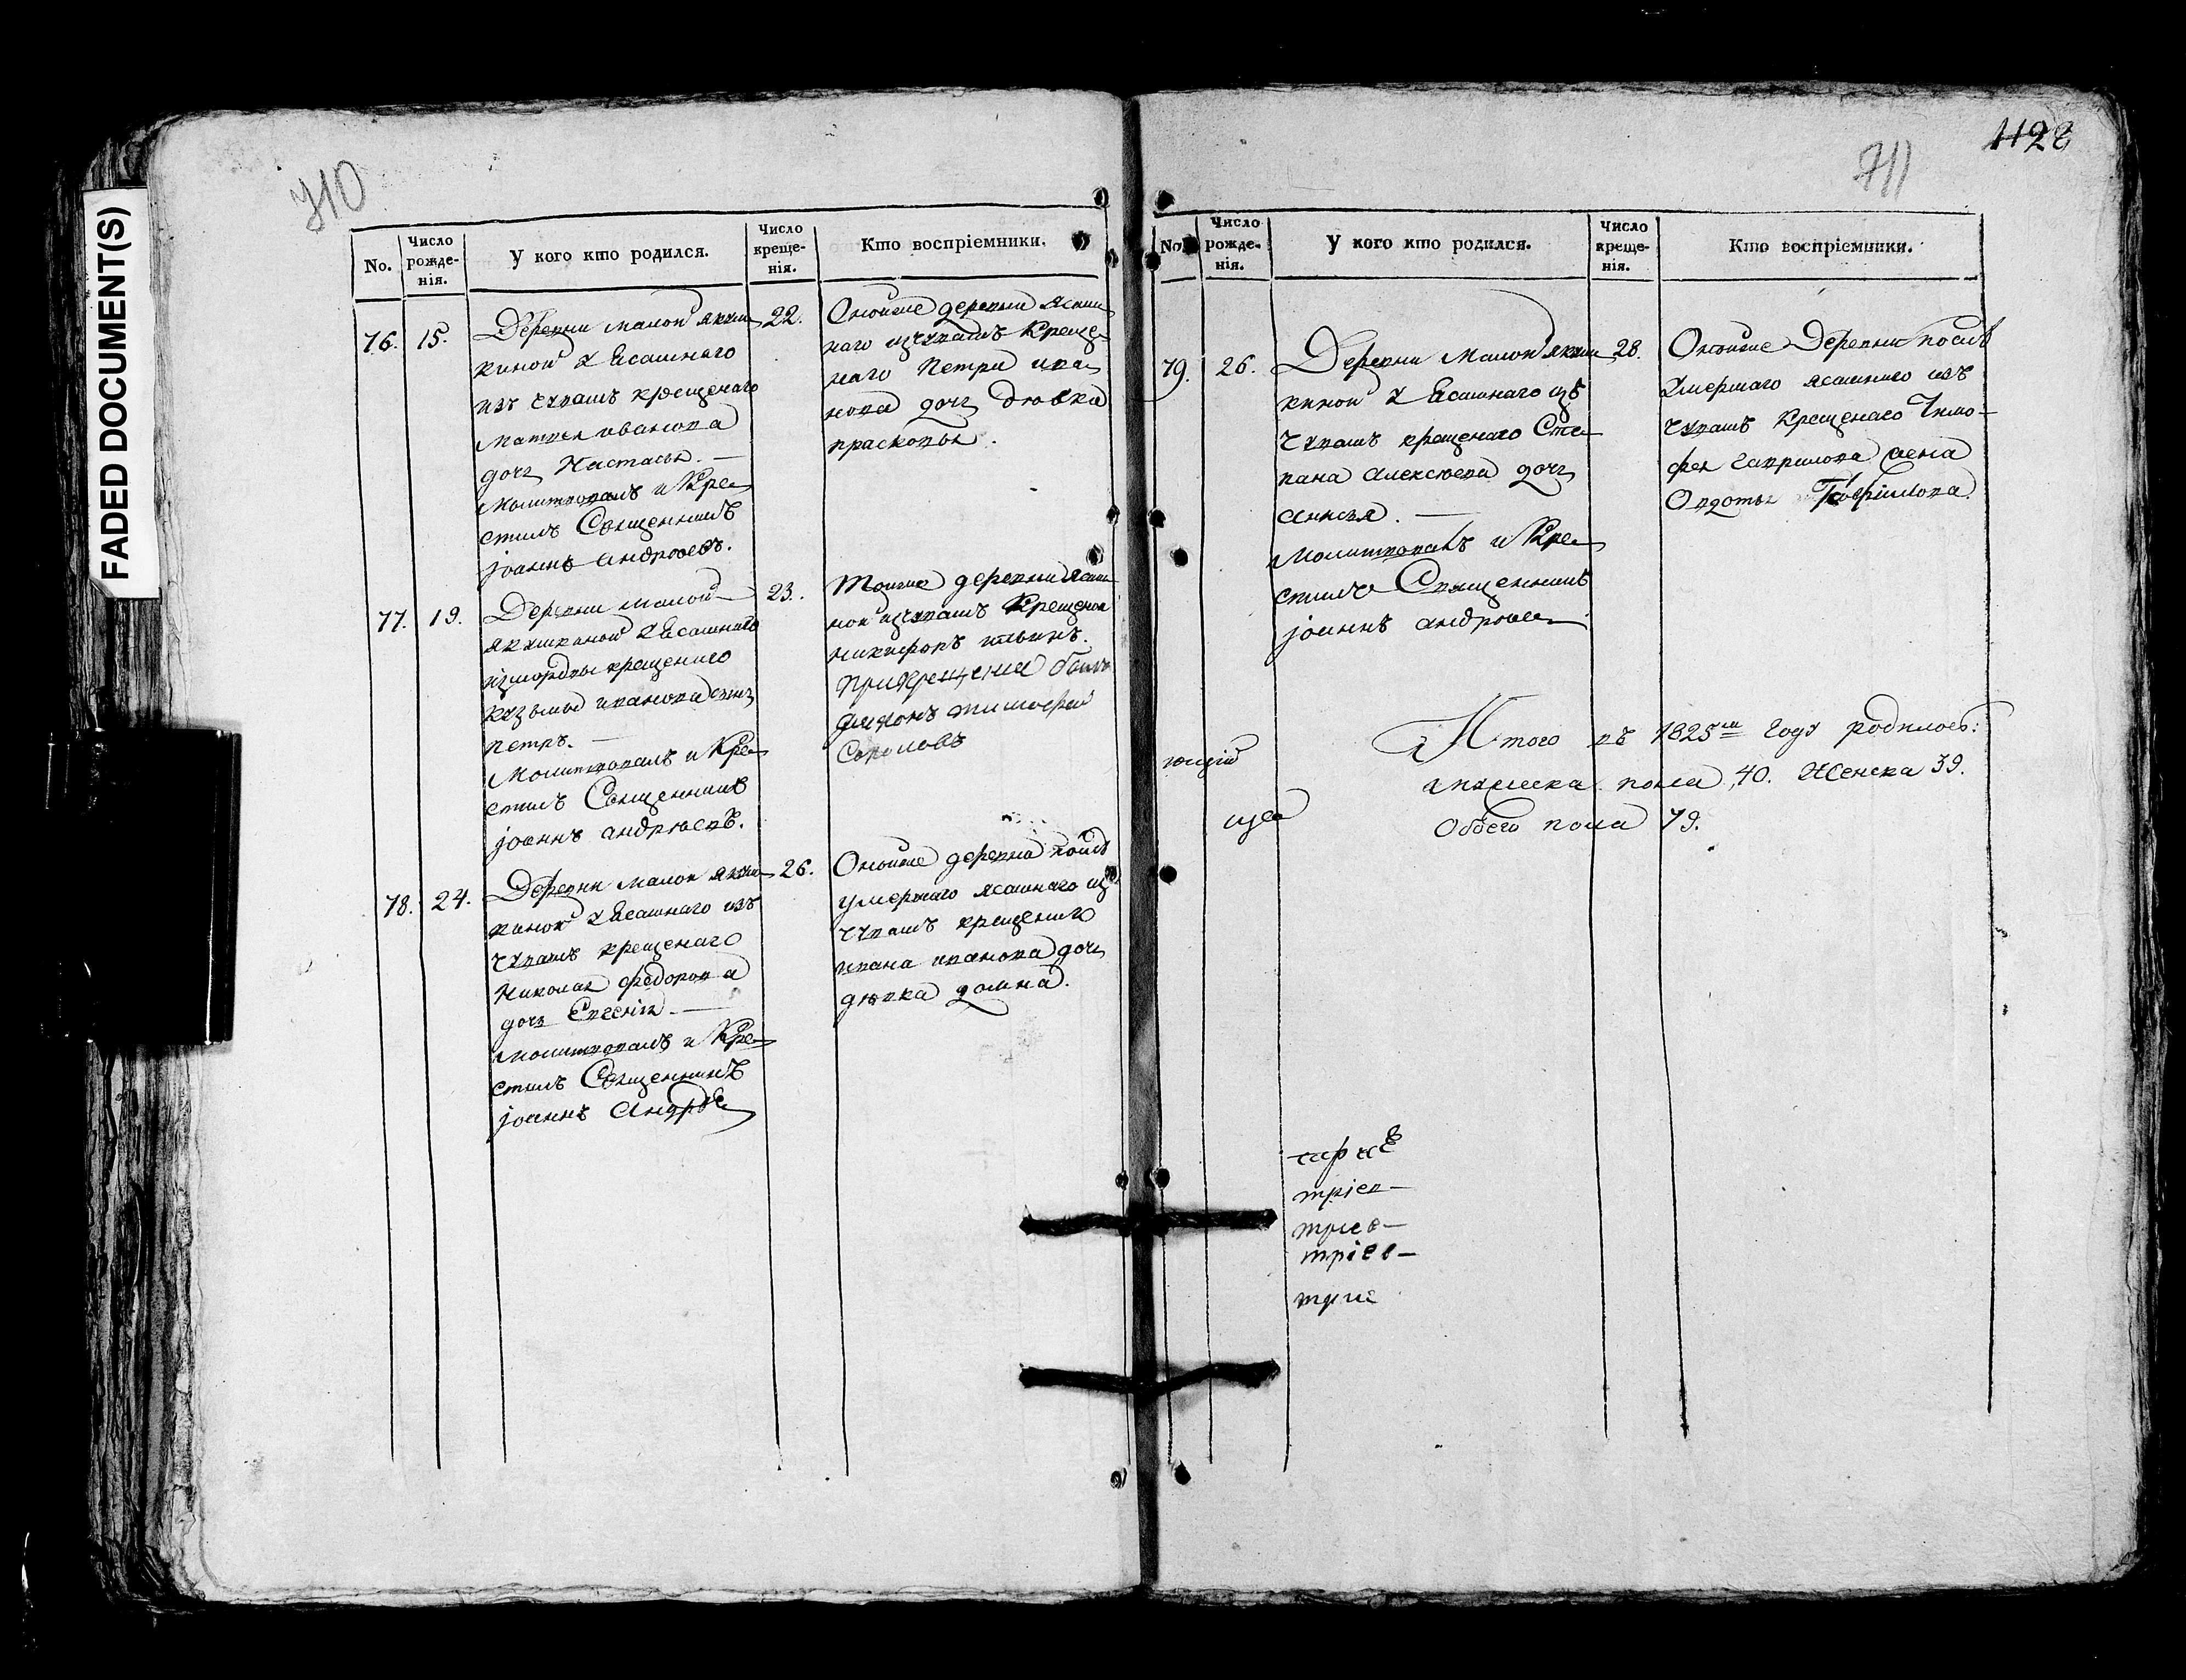 FADED DOCUMENT(S)
710
No.
Число рожде-нія.
У кого кто родился.
Число креще-нія.
Кто воспріемники.
76. 15.
Деревни малой якуш
киной у Ясашнаго
изъ чувашъ крещенаго
матвея иванова
дочь Настасья. —
Молитвовалъ и Кре
стилъ Священникъ
іоаннъ андреевъ.
22.
Оной же деревни ясаш
наго изчувашъ Креще
наго Петра ива
нова дочь девка
прасковья.
77. 19.
Деревни малой
якушкиной у Ясашнаго
измордвы крещенаго
кузьмы иванова сынъ
петръ. —
Молитвовалъ и Кре
стилъ Священникъ
іоаннъ андреевъ.
23.
Тойже деревни ясаш
ной изчувашъ Крещеной
никифоръ
прикрещении былъ
тимофей
Соколовъ
78. 24.
Деревни малой якуш
киной у Ясашнаго изъ
чувашъ крещенаго
Николая федорова
дочь Евгенія. —
молитвовалъ и Кре
стилъ Священникъ
іоаннъ Андрее
26.
Оной же деревни послѣ
умершаго ясашнаго изъ
чувашъ крещенаго
ивана иванова дочь
девка домна.
1128
711
No.
Число рожде-нія.
У кого кто родился.
Число креще-нія.
Кто воспріемники.
79. 26.
Деревни Малой якуш
киной у Ясашнаго изъ
чувашъ крещенаго Сте
пана алексеева дочь
анисья. —
Молитвовалъ и Кре
стилъ Священникъ
іоаннъ андреев
28.
Оной же Деревни послѣ
умершаго ясашнаго изъ
чувашъ Крещенаго Тимо-
фея гаврилова жена
Овдотья Гаврилова.
Итого въ 1825м Году родилось:
мужеска пола 40. Женска 39.
Обоего пола 79.
ющій
щев
тріев-
тріев-
тріев-